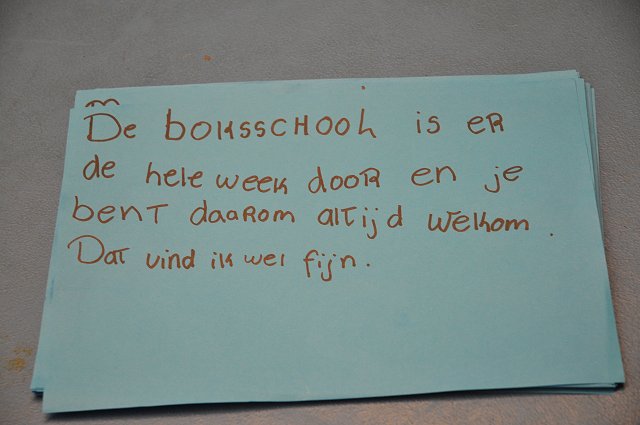 De boksschool is er
de hele week door en je
bent daarom altijd welkom.
Dat vind ik wel fijn.